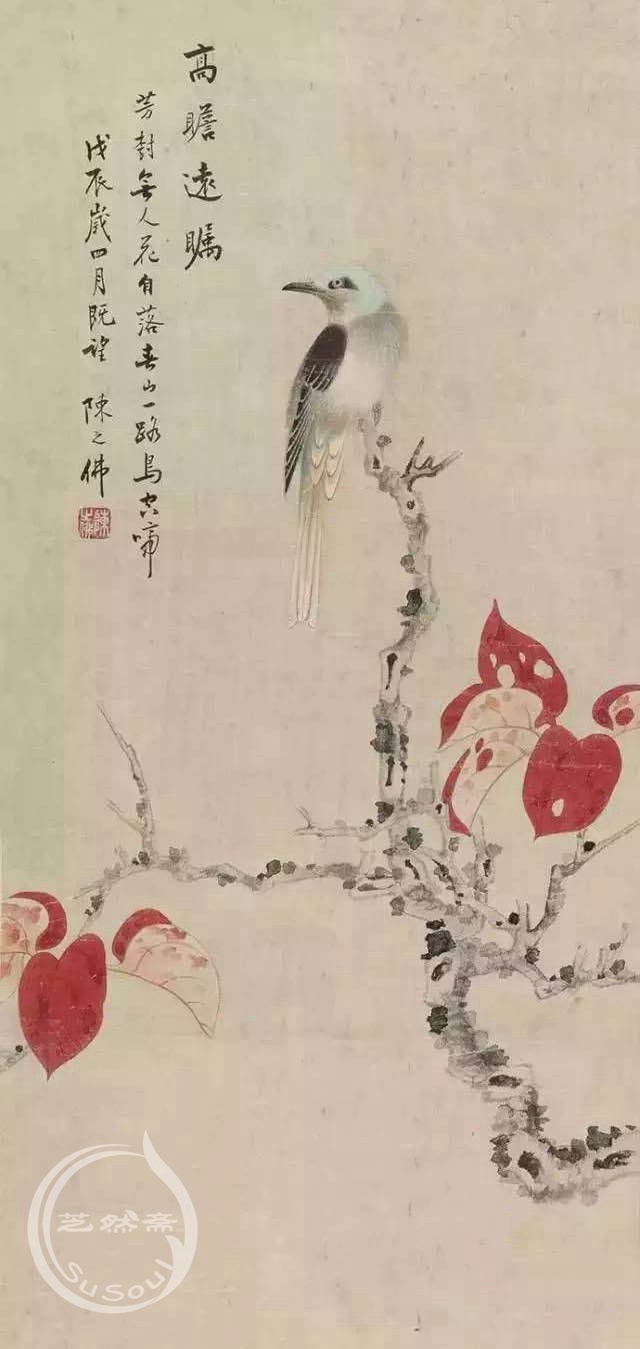 高瞻遠瞩
芳封無人花自落春山一路鳥空啼
戊辰歲四月既望 陳之佛
芝然斋
SuSoul